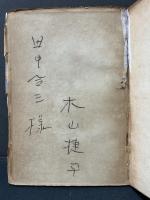 田中令三
様
木山捷平